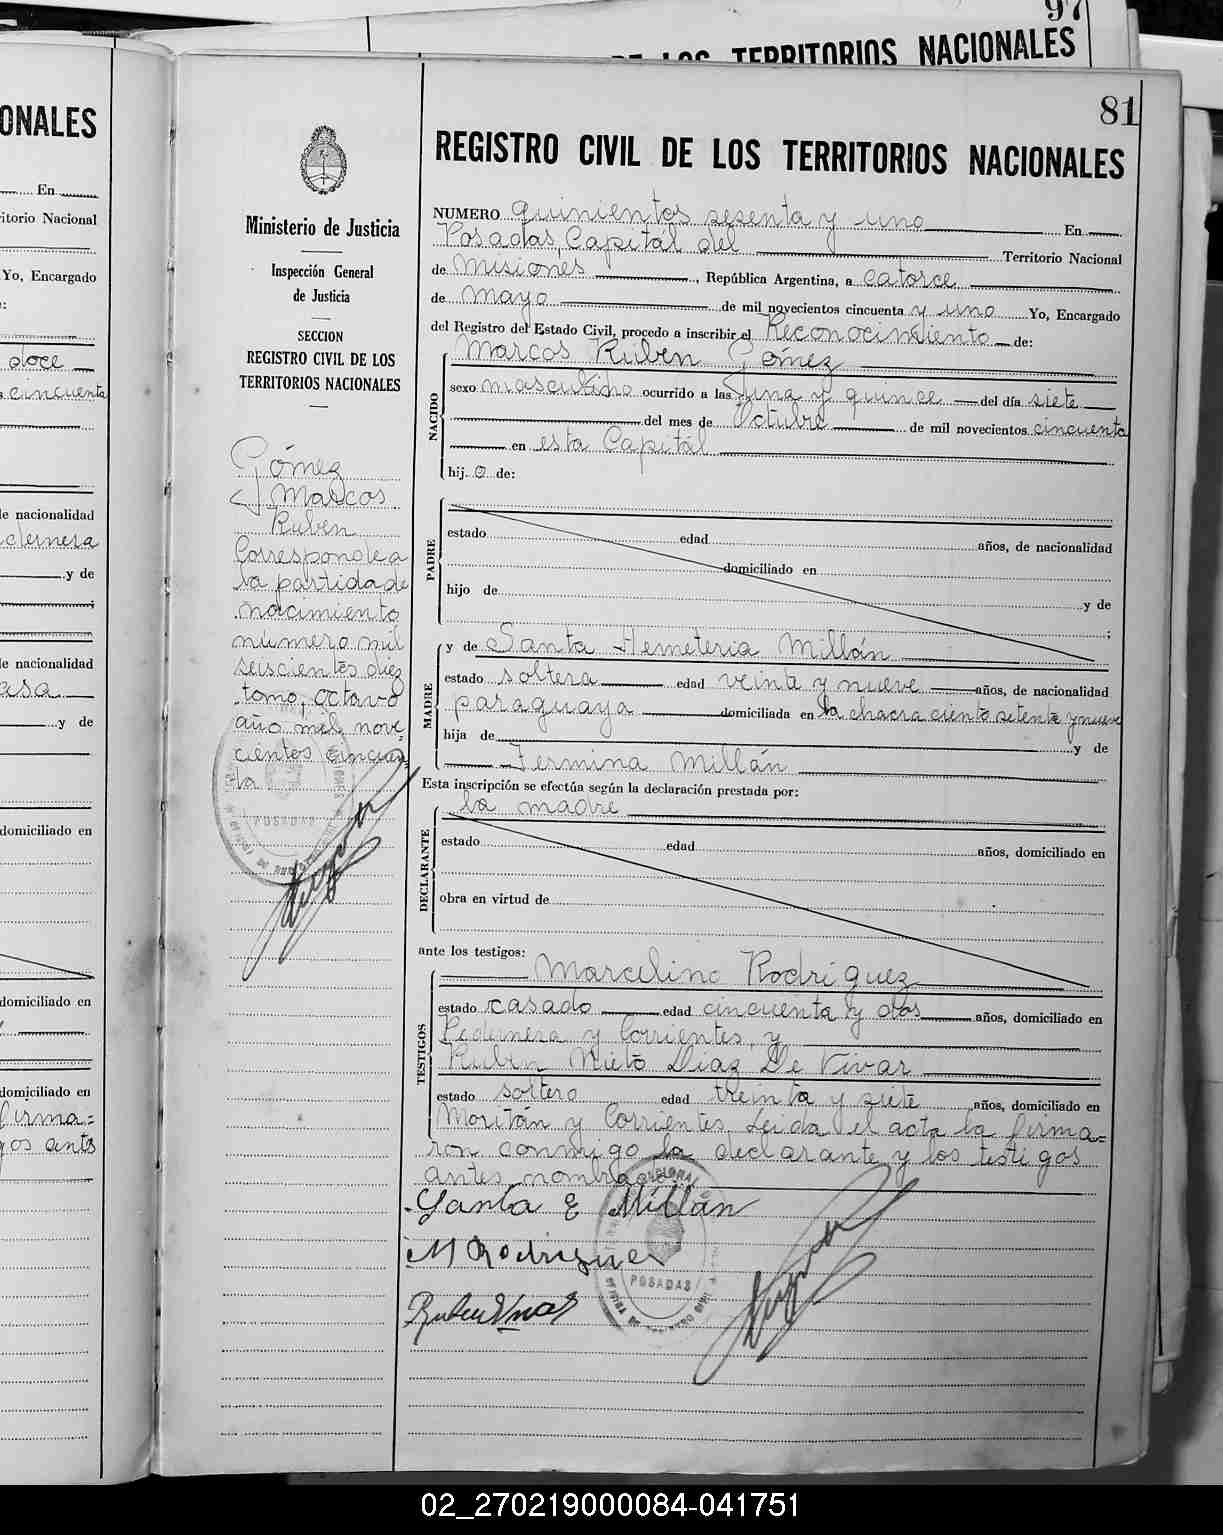 97
DE LOS TERRITORIOS NACIONALES
81
ONALES
En
itorio Nacional
Yo, Encargado
doce
cincuenta
de nacionalidad
y de
de nacionalidad
asa
y de
domiciliado en
domiciliado en
domiciliado en
firma=
gos antes
Ministerio de Justicia
Inspección General
de Justicia
SECCION
REGISTRO CIVIL DE LOS
TERRITORIOS NACIONALES
Gómez
Marcos
Ruben
Corresponde a
la partida de
nacimiento
número mil
seiscientos diez
tomo, octavo
año mil nove=
cientos cincuen=
ta
POSADAS
REGISTRO CIVIL DE LOS TERRITORIOS NACIONALES
NUMERO quinientos sesenta y uno En
Posadas, Capitál del Territorio Nacional
de Misiones, República Argentina, a catorce
de mayo de mil novecientos cincuenta y uno Yo, Encargado
del Registro del Estado Civil, procedo a inscribir el Reconocimiento de:
Marcos Rúben Gomez
NACIDO
sexo masculino ocurrido a las una y quince del día siete
del mes de Octubre de mil novecientos cincuenta
en esta Capitál
hij o de:
PADRE
estado edad años, de nacionalidad
domiciliado en
hijo de y de
;
MADRE
y de Santa Hemeteria Millán
estado soltera edad veinte y nueve años, de nacionalidad
paraguaya domiciliada en la chacra ciento setenta y nueve
hija de y de
Fermina Millán
Esta inscripción se efectúa según la declaración prestada por:
la madre
DECLARANTE
estado edad años, domiciliado en
obra en virtud de
ante los testigos:
TESTIGOS
Marcelino Rodríguez
estado casado edad cincuenta y dos años, domiciliado en
Pedernera y Corrientes, y
Rubén Nieto Diaz De Vivar
estado soltero edad treinta y siete años, domiciliado en
Moritán y Corrientes. Leida el acta la firma=
ron conmigo la declarante y los testigos
antes nombrados.
Santa E Millán
M Rodriguez
POSADAS
02_270219000084-041751